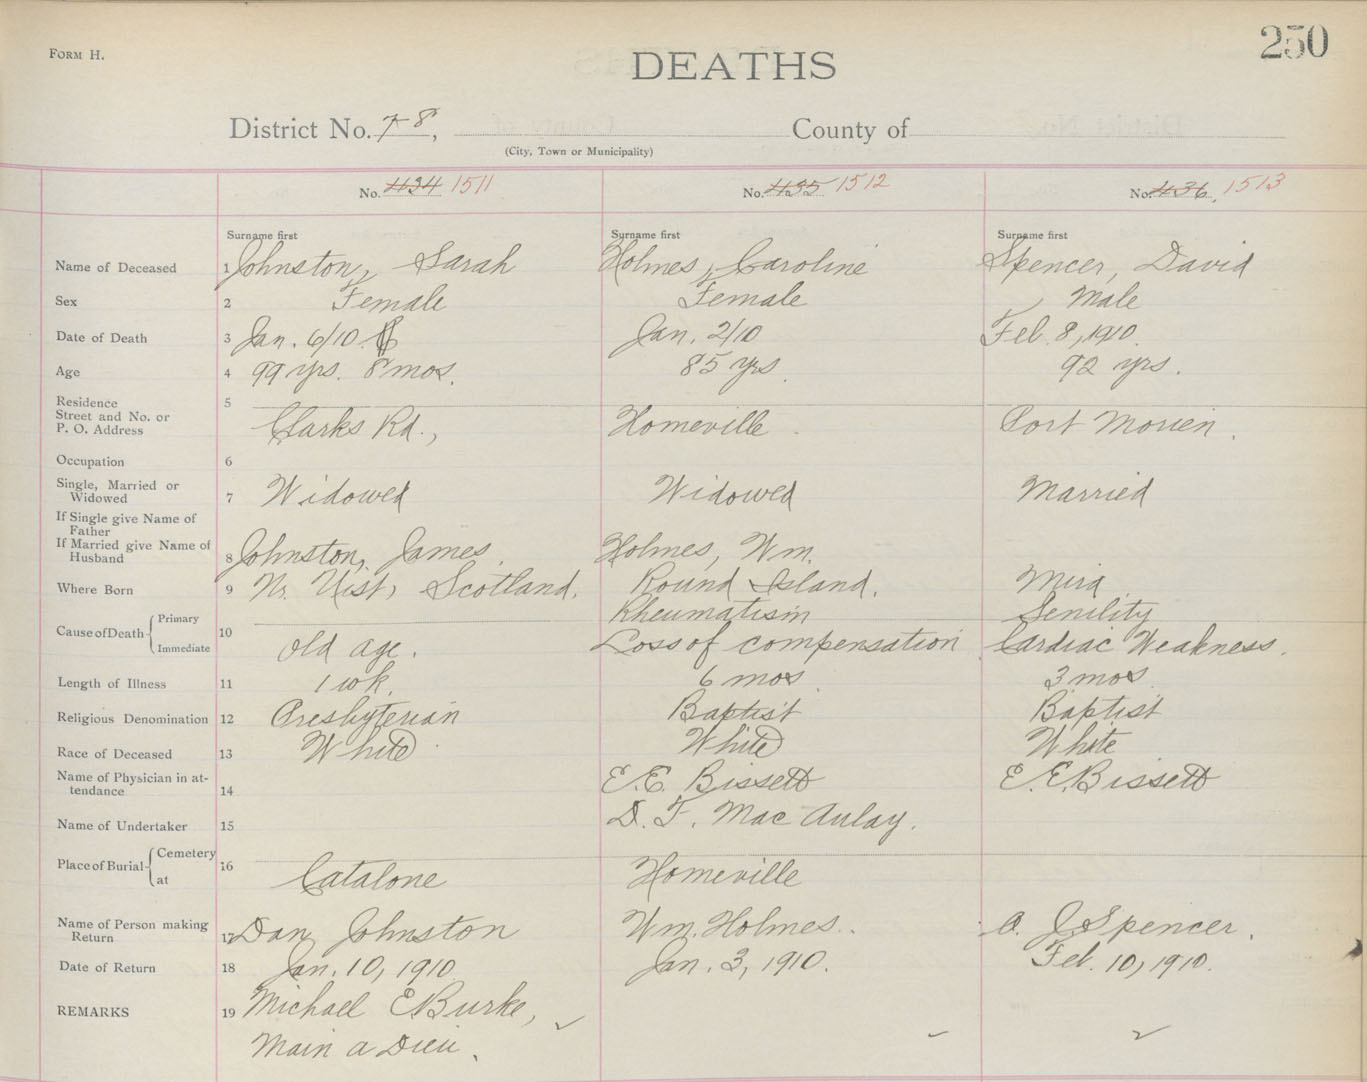 FORM H.
250
DEATHS
District No. 7-8, County of
(City, Town or Municipality)
No. 434 1511 No. 435 1512 No. 436, 1513
Surname first Surname first Surname first
Name of Deceased 1 Johnston, Sarah Holmes, Caroline Spencer, David
Sex 2 Female Female Male
Date of Death 3 Jan. 6/10 Jan. 2/10 Feb. 8, 1910.
Age 4 99 yrs. 8 mos. 85 yrs. 92 yrs.
Residence 5
Street and No. or
P. O. Address Clarks Rd., Homeville Port Morien.
Occupation 6
Single, Married or
Widowed 7 Widowed Widowed Married
If Single give Name of
Father
If Married give Name of
Husband 8 Johnston, James Holmes, Wm.
Where Born 9 Nr. Uist, Scotland. Round Island. Mira
Cause of Death Primary Rheumatism Senility
10 Immediate old age. Loss of compensation Cardiac Weakness.
Length of Illness 11 1 wk. 6 mos 3 mos
Religious Denomination 12 Presbyterian Baptist Baptist
Race of Deceased 13 White White White
Name of Physician in at-
tendance 14 E. E. Bissett E. E. Bissett
Name of Undertaker 15 D. F. Mac Aulay.
Place of Burial Cemetery 16
at Catalone Homeville
Name of Person making
Return 17 Dan Johnston Wm. Holmes. A. J. Spencer.
Date of Return 18 Jan. 10, 1910 Jan. 3, 1910. Feb. 10, 1910.
REMARKS 19 Michael E Burke,
Main a Dieu.